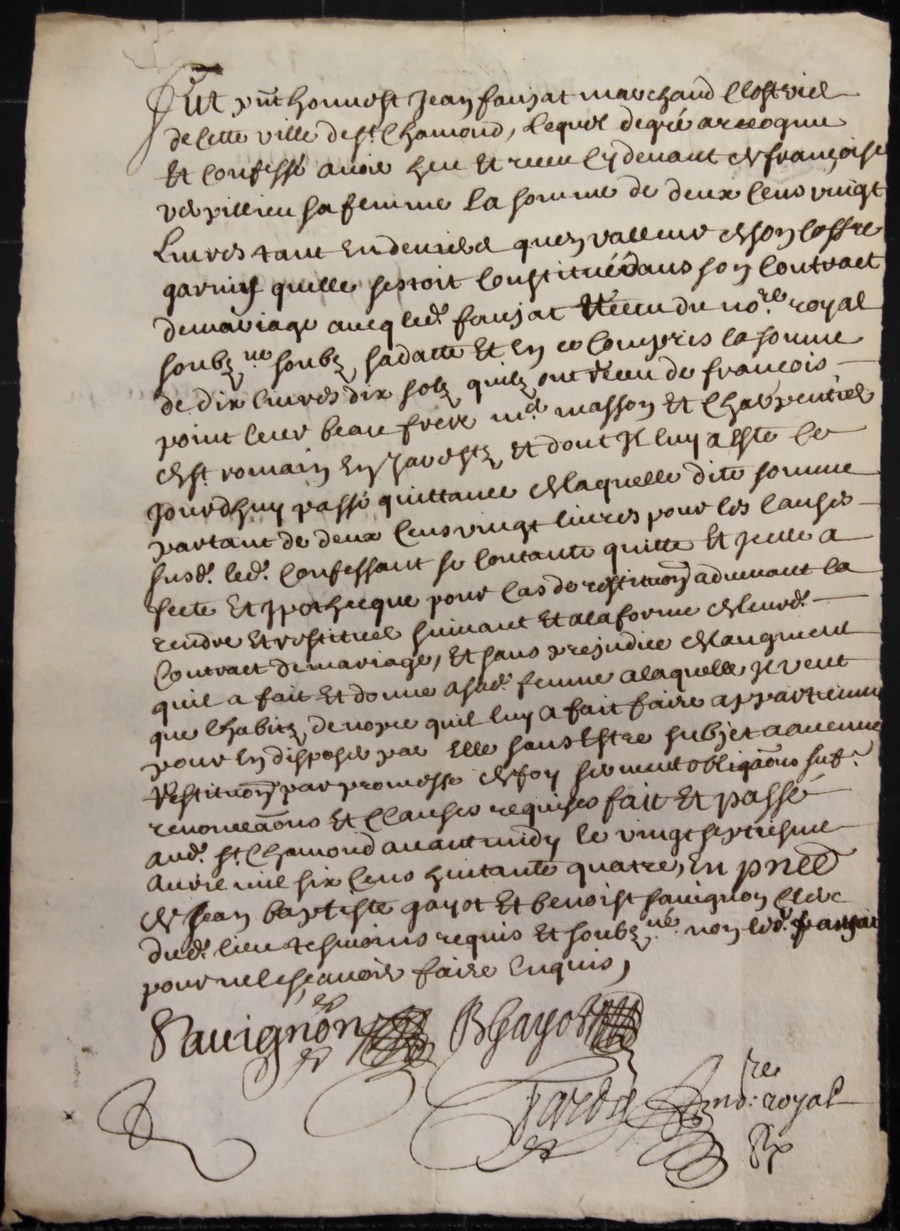 Fut pnt honnest Jean faujat marchand clostrier
de cette ville de st Chamond, lequel de gré a recogneu
Et confessé avoir heu Et receu cy devant de françoise
verpillieu sa femme la somme de deux cens vingt
livres tant en deniers quen valleur de son coffre
garnis quelle sestoit constituée dans son contract
de mariage avecq led. faujat Receu du nore. royal
soubz.né soubz sa datte Et En ce compris la somme
de dix livres dix solz quilz ont receu de francois
point leur beau frère md. masson Et charpentier
de st. romain En Jarestz, Et dont Il luy a esté ce
jourdhuy passé quittance de laquelle dite somme
partant de deux cens vingt livres pour les causes
susd. led. confessant se contante quitte Et Jcelle a
Jecte Et Jpothecque pour cas de restitution advenant la
rendre Et restituer suivant Et a la forme de leurd.
Contract de mariage, Et sans prejudice de laugment
quil a fait Et donne a sad. femme a laquelle Il veut
que lhabitz de noxe quil luy a fait faire appartienne
pour En disposer par Elle sans Estre subjet a aucune
Restitution par promesse de foy serment obligaons sub.
renonceaons Et clauses requises fait Et passé
aud. st. Chamond avant midy le vingt septiesme
avril mil six cens huitante quatre, En pnce
de Jean baptiste gayot Et benoist sauvignon clerc
dud. lieu tesmoins requis Et soubz.nés non led. faujat
pour ne le sçavoir faire Enquis,
Sauvignon BGayot
Tardy nore. royal